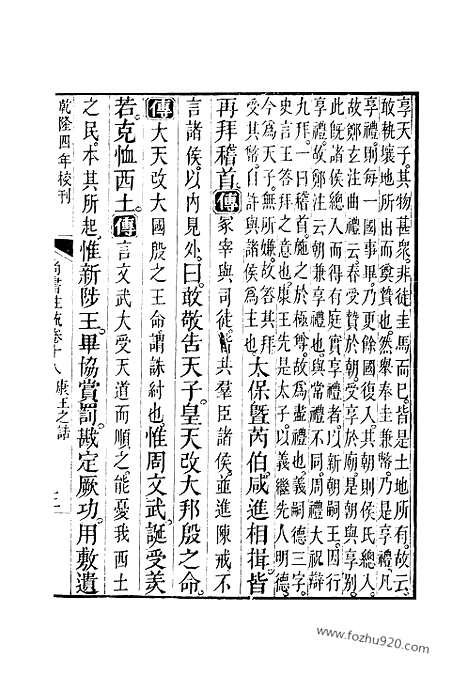 享天子。其物甚衆。非徒圭馬而已。皆是土地所有。故云。
敢執壤地所出而奠贄也。然衆奉圭兼幣。乃是享禮。凡
享禮。則每一國事畢。乃更餘國復入。其朝則侯氏總入。
故鄭玄注曲禮云。春受贄於朝。受享於廟。是朝與享別。
此旣諸侯總入而得有庭實享者。以新朝嗣王。因行
享禮。故鄭注云。朝兼享禮也。與常禮不同。周禮大祝。辯
九拜。一曰稽首。施之於極尊。故爲盡禮也。義嗣德三字。
史言王答拜之意也。康王先是太子。以義繼先人明德。
今爲天子。無所嫌。故答其拜
受其幣。自許與諸侯爲主也。
太保暨芮伯。咸進相揖。皆
再拜稽首。傳冢宰與司徒。共羣臣諸侯。並進陳戒。不
言諸侯。以內見外。曰。敢敬告天子。皇天改大邦殷之命。
傳大天改大國殷之王命。謂誅紂也。惟周文武。誕受羑
若。克恤西土。傳言文武大受天道而順之。能憂我西土
之民。本其所起。惟新陟王。畢協賞罰。戡定厥功。用敷遺
乾隆四年校刊
尚書注疏卷十八 康王之誥
www.fozhu920.com